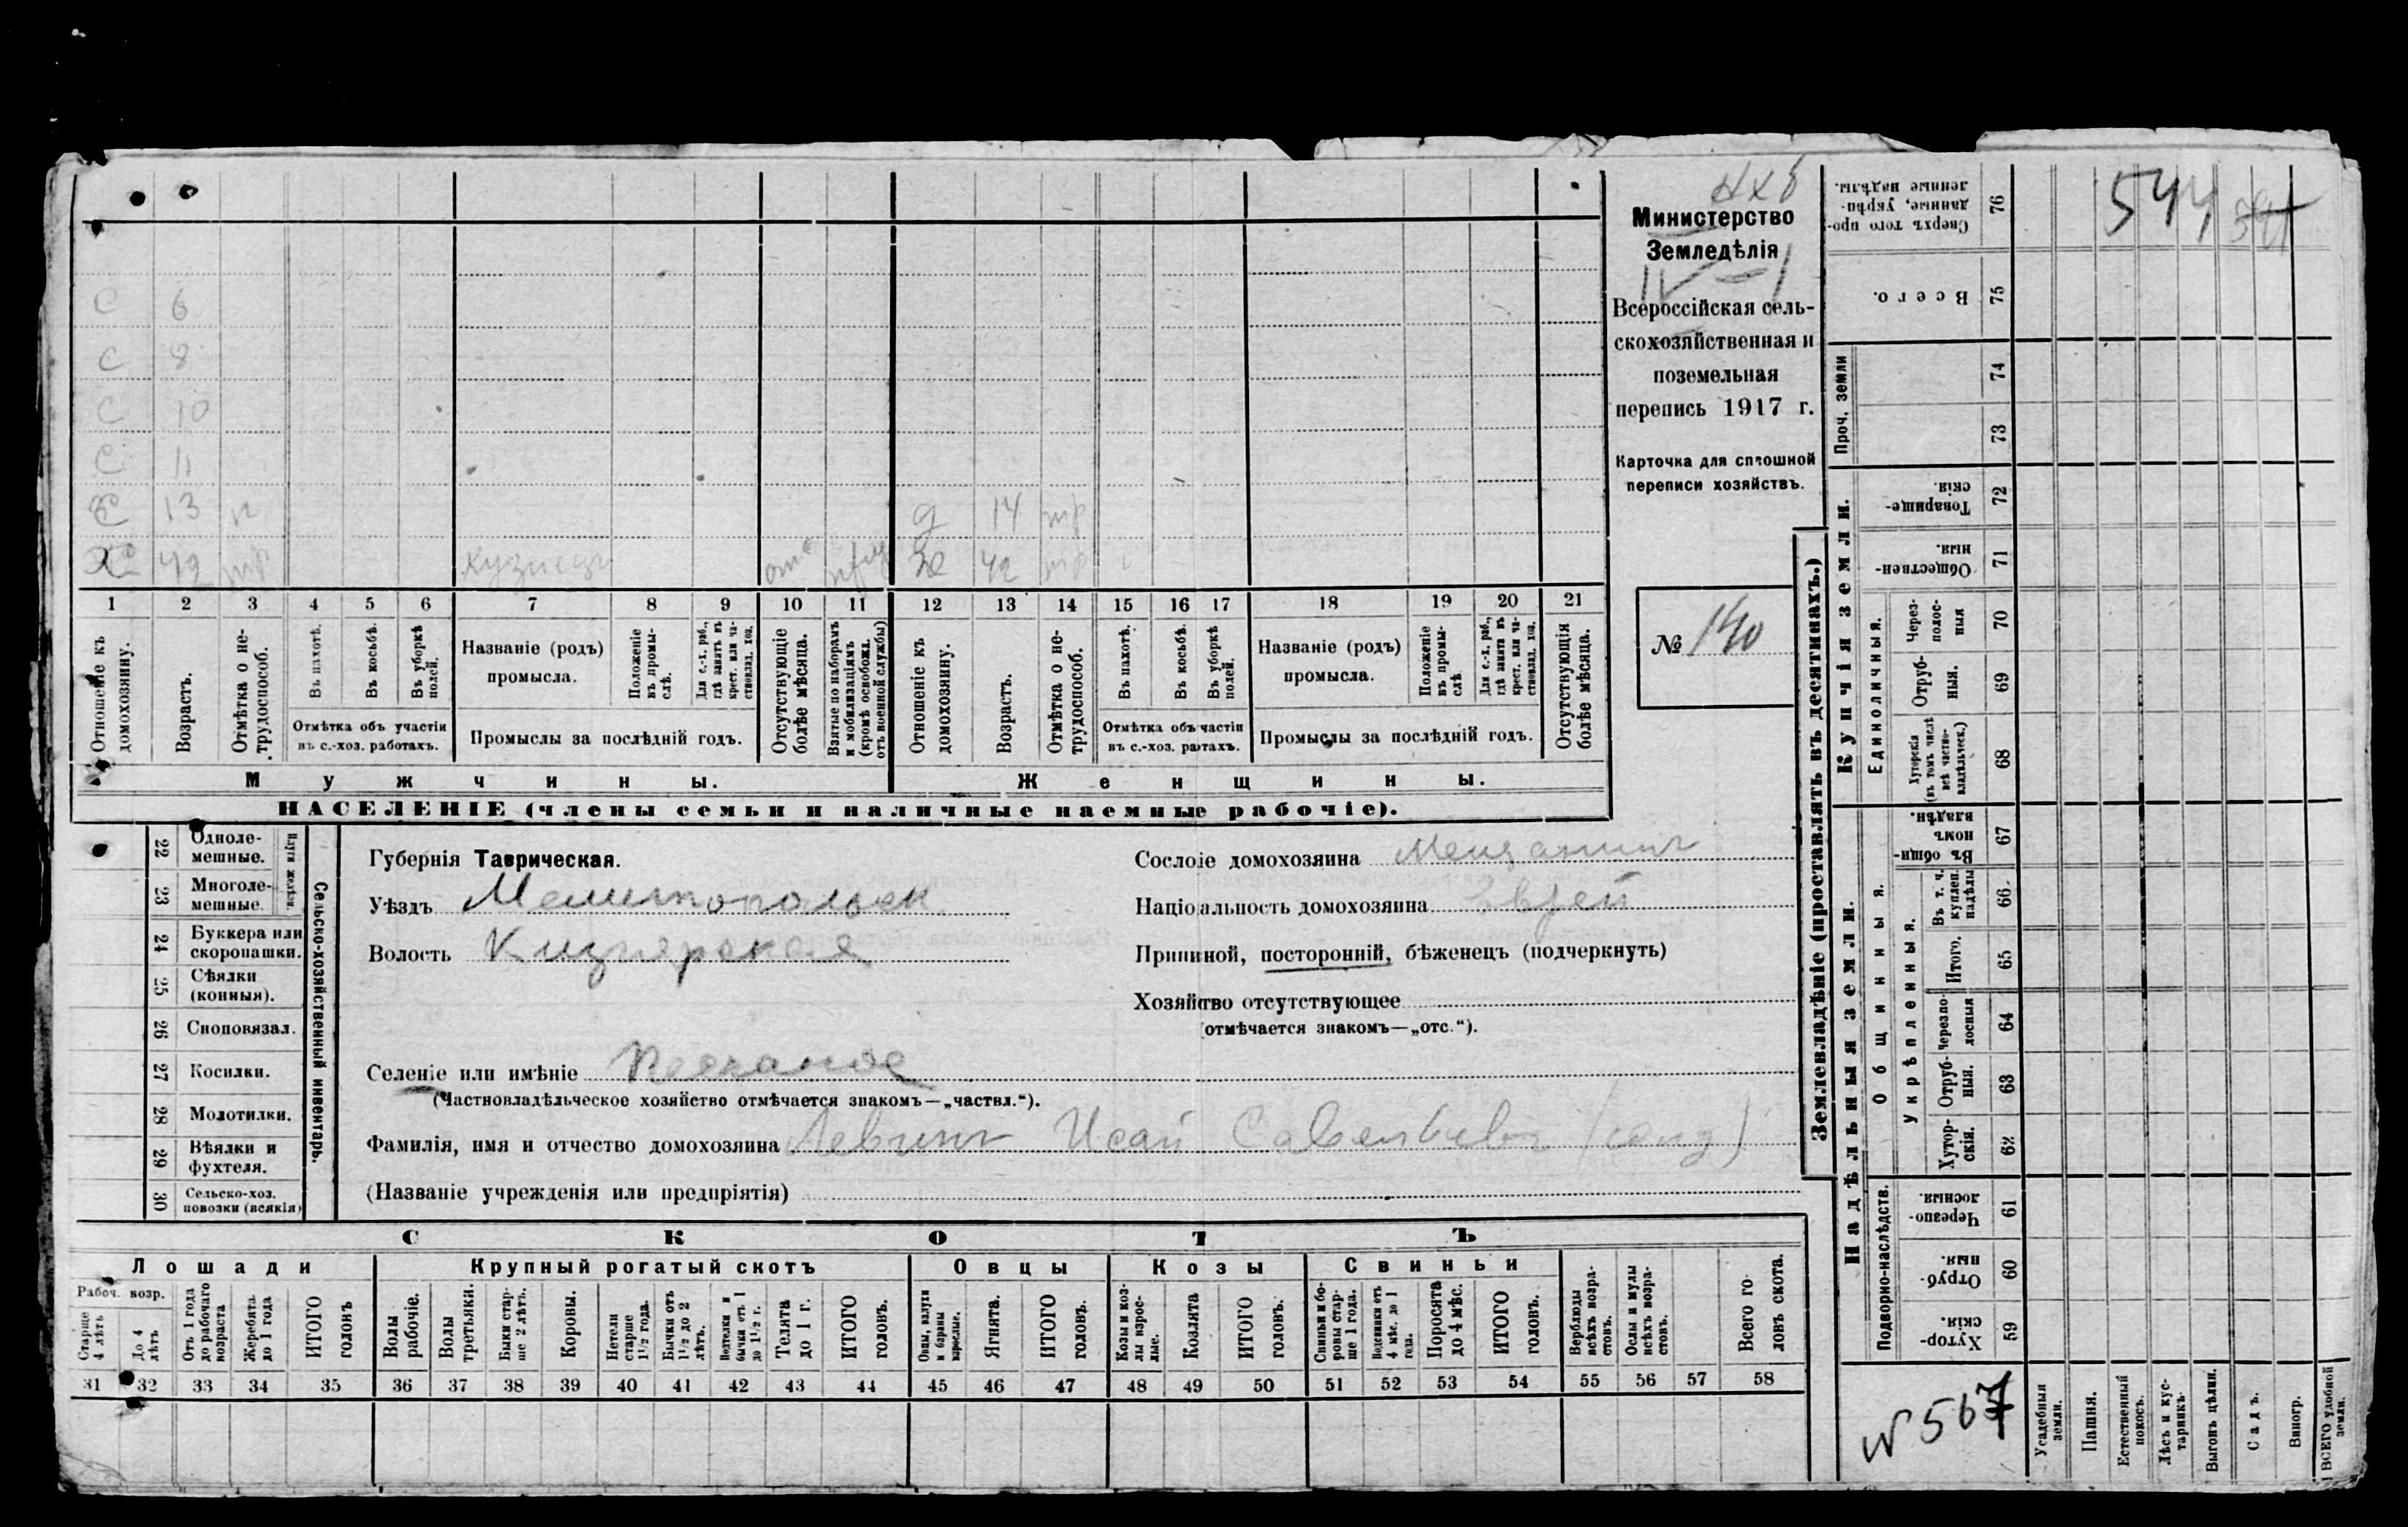 544
Министерство
Земледѣлія
IV – 1
Всероссійская сель-
скохозяйственная и
поземельная
перепись 1917 г.
Карточка для сплошной
переписи хозяйствъ.
№ 140
С 6
С 8
С 10
С 11
С 13 п д 14 нр
Х 42 нр кузнецъ отс Ж 42 нр
1 2 3 4 5 6 7 8 9 10 11 12 13 14 15 16 17 18 19 20 21
Отношеніе къ домохозяину.
Возрастъ.
Отмѣтка о не-трудоспособ.
Въ пахотѣ.
Въ косьбѣ.
Въ уборкѣ полей.
Отмѣтка объ участіи
въ с.-хоз. работахъ.
Названіе (родъ)
промысла.
Положеніе въ промы-слѣ.
Для с.-х. раб., гдѣ занятъ въ крест. или ча-стновлад. хоз.
Промыслы за послѣдній годъ.
Отсутствующіе болѣе мѣсяца.
Взятые по наборамъ и мобилизаціямъ (кромѣ освобожд. отъ военной службы)
Отношеніе къ домохозяину.
Возрастъ.
Отмѣтка о не-трудоспособ.
Въ пахотѣ.
Въ косьбѣ.
Въ уборкѣ полей.
Отмѣтка объ частіи
въ с.-хоз. ратахъ.
Названіе (родъ)
промысла.
Положеніе въ промы-слѣ.
Для с.-х. раб., гдѣ занятъ въ крест. или ча-стновлад. хоз.
Промыслы за послѣдній годъ.
Отсутствующія болѣе мѣсяца.
Мужчины.
Женщины.
НАСЕЛЕНІЕ (члены семьи и наличные наемные рабочіе).
22 Одноле-
мешные.
23 Многоле-
мешные.
Плуги желѣзн.
24 Буккера или
скоропашки.
25 Сѣялки
(конныя).
26 Сноповязал.
27 Косилки.
28 Молотилки.
29 Вѣялки и
фухтеля.
30 Сельско-хоз.
повозки (всякія)
Сельско-хозяйственный инвентарь.
Губернія Таврическая.
Уѣздъ Мелитопольск
Волость Кизиярская
Селеніе или имѣніе Песчаное
(Частновладѣльческое хозяйство отмѣчается знакомъ—„частвл.“).
Фамилія, имя и отчество домохозяина Левинъ Исай Савельевъ (солд)
(Названіе учрежденія или предпріятія)
Сословіе домохозяина Мещанинъ
Національность домохозяина Еврей
Приписной, посторонній, бѣженецъ (подчеркнуть)
Хозяйство отсутствующее
(отмѣчается знакомъ—„отс.“).
СКОТЪ
Лошади
Рабоч. возр.
Старше 4 лѣтъ
До 4 лѣтъ
Отъ 1 года до рабочаго возраста
Жеребята до 1 года
ИТОГО головъ
Крупный рогатый скотъ
Волы рабочіе.
Волы третьяки.
Быки стар-ше 2 лѣтъ.
Коровы.
Нетели старше 1½ года.
Бычки отъ 1½ до 2 лѣтъ.
Подтелки и бычки отъ 1 до 1½ г.
Телята до 1 г.
ИТОГО головъ.
Овцы
Овцы, валухи и бараны взрослые.
Ягнята.
ИТОГО головъ.
Козы
Козы и коз-лы взрос-лые.
Козлята
ИТОГО головъ.
Свиньи
Свиньи и бо-ровы стар-ше 1 года.
Подсвинки отъ 4 мѣс. до 1 года.
Поросята до 4 мѣс.
ИТОГО головъ.
Верблюды всѣхъ возра-стовъ.
Ослы и мулы всѣхъ возра-стовъ.
Всего го-ловъ скота.
31 32 33 34 35 36 37 38 39 40 41 42 43 44 45 46 47 48 49 50 51 52 53 54 55 56 57 58
Землевладѣніе (проставлять въ десятинахъ.)
Купчія земли.
Надѣльныя земли.
Сверхъ того про-данные, укрѣп-ленные надѣлы. 76
Всего. 75
Проч. земли
74
73
Товарище-скія. 72
Обществен-ныя. 71
Единоличныя.
Через-полос-ныя 70
Отруб-ныя. 69
Хуторскія (въ томъ числѣ всѣ частно-владѣльческ.) 68
Общинныя.
Въ общин-номъ владѣн. 67
Укрѣпленныя.
Въ т. ч. куплен. надѣлы 66
Итого. 65
Черезпо-лосныя 64
Отруб-ныя. 63
Хутор-скія. 62
Подворно-наслѣдств.
Черезпо-лосныя. 61
Отруб-ныя. 60
Хутор-скія. 59
N 567
Усадебныя земли.
Пашня.
Естественный покосъ.
Лѣсъ и кус-тарникъ.
Выгонъ цѣлин.
Садъ.
Виногр.
ВСЕГО удобной земли.